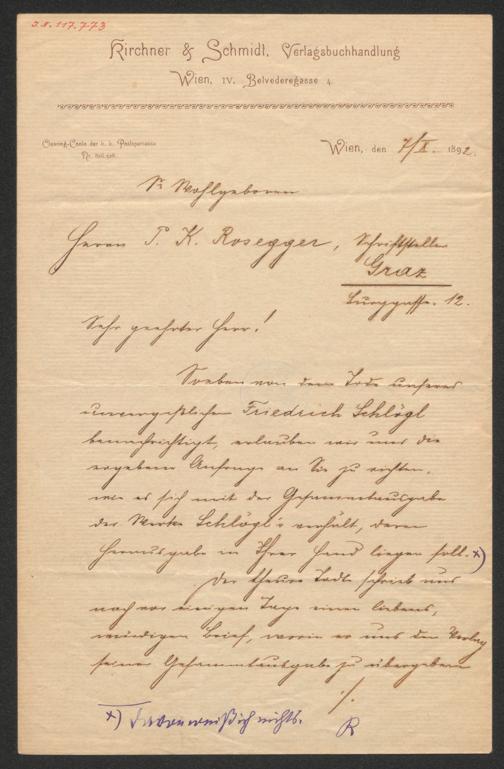 I.N. 117.773
Kirchner & Schmidt, Verlagsbuchhandlung
Wien, IV. Belvederegasse 4.
Clearing-Conto der k. k. Postsparcasse
Wien, den 7/X. 1892.
Sr Wohlgeboren
Herrn P. K. Rosegger, Schriftsteller
Graz
Burggasse. 12.
Sehr geehrter Herr!
Soeben von dem Tode unseres
unvergeßlichen Friedrich Schlögl
benachrichtigt, erlauben wir uns die
ergebene Anfrage an Sie zu richten,
wie es sich mit der Gesammtausgabe
der Werke Schlögl's verhält, deren
Herausgabe in Ihrer Hand liegen soll. x)
Der theure Todte schrieb uns
noch vor einigen Tage einen liebens,
würdigen Brief, worin er uns den Verlag
seiner Gesammtausgabe zu übergeben
./.
x) Davon weiß ich nichts. R